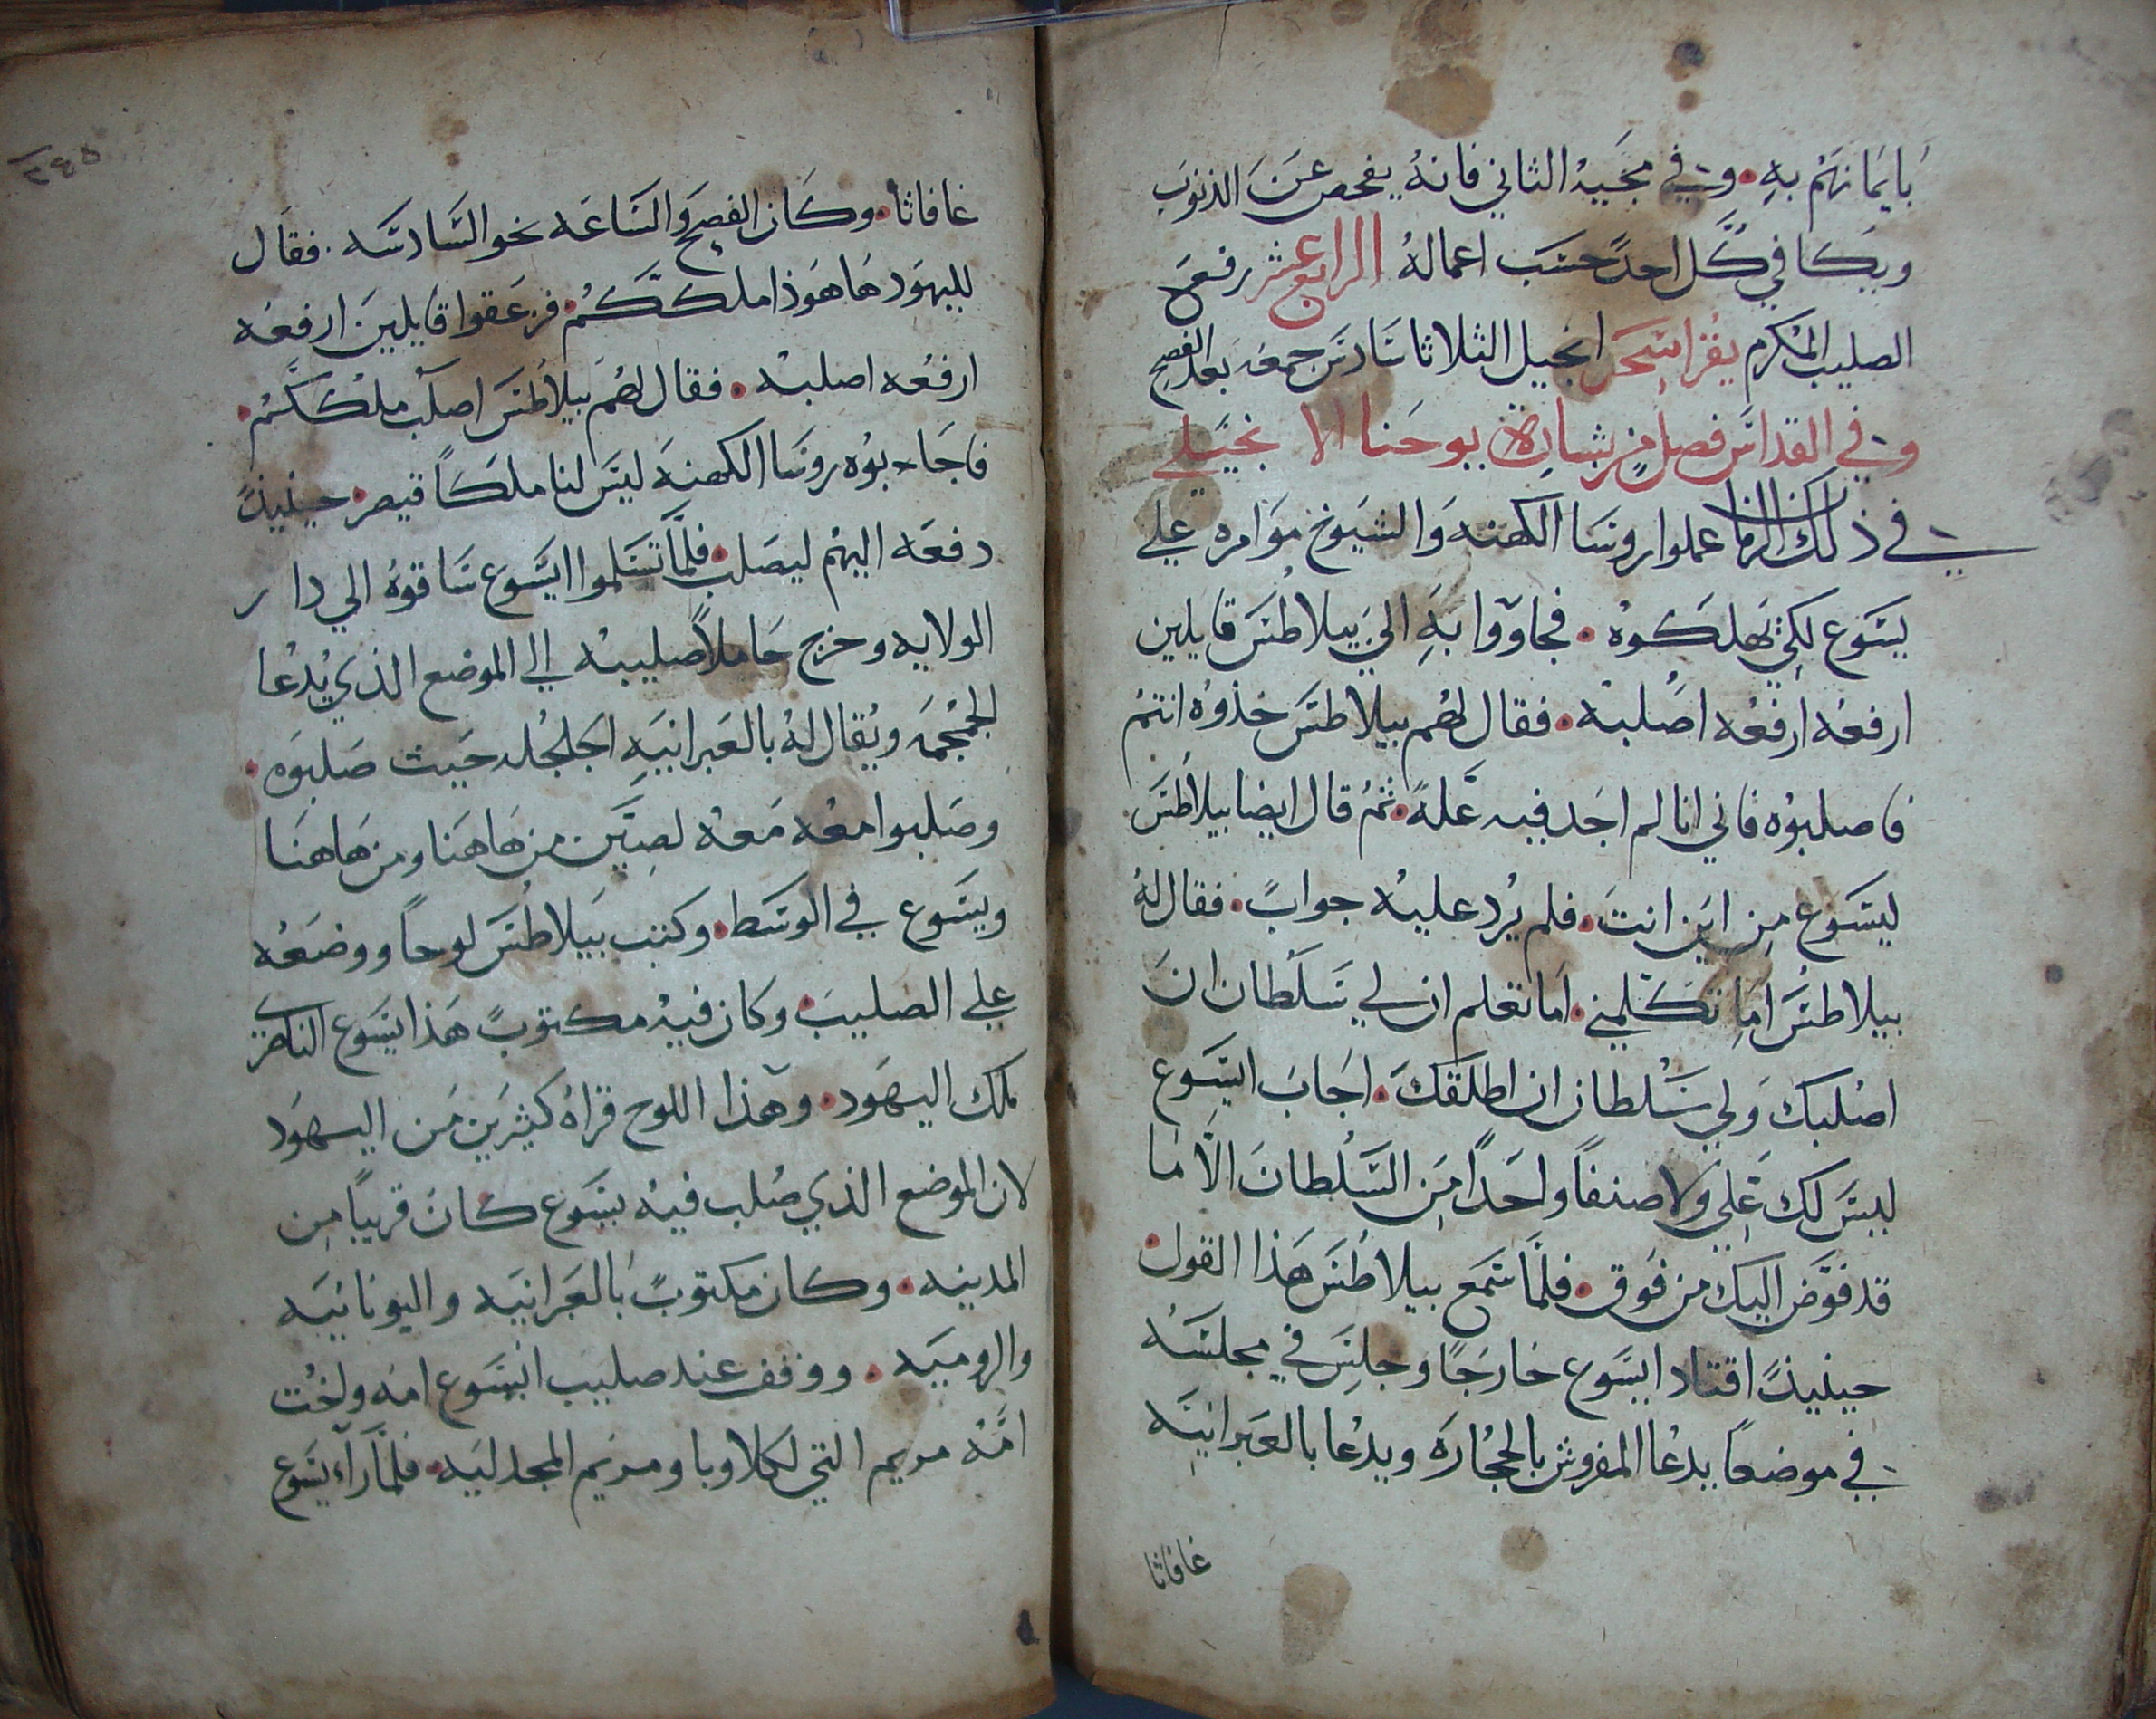 بايمانهم به• وفي مجيه الثاني فانه يفحص عن الذنوب
ويكافي كل احدً حسب اعماله الرابع عشر رفع
الصليب المكرم يقرا سحر انجيل الثلاثا سادس جمعه بعد الفصح
وفي القداس فصل من بشارة يوحنا الانجيلي
في ذلك الزمان عملوا روسا الكهنه والشيوخ موامره علي
يسوع لكي يهلكوه • فجاووا به الي بيلاطس قايلين
ارفعه ارفعه اصلبه• فقال لهم بيلاطس خذوه انتم
فاصلبوه فاني انا لم اجد فيه علةً• ثم قال ايضا بيلاطس
ليسوع من اين انت• فلم يُرد عليه جوابً• فقال له
بيلاطس اما تكلمني• اما تعلم ان لي سلطان ان
اصلبك ولي سلطان ان اطلقك• اجاب ايسوع
ليس لك علي ولا صنفاً واحداً من السلطان الّا ما
قد فوّض اليك من فوق• فلمّا سمع بيلاطس هذا القول•
حينيذً اقتاد ايسوع خارجًا وجلس في مجلسه
في موضعاً يدعا المفروش بالحجاره ويدعا بالعبرانيه
غافاثا
٢٤٥
غافاثا• وكان الفصح والساعه نحو السادسه• فقال
لليهود هاهوذا ملككم• فزعقوا قايلين ارفعه
ارفعه اصلبه• فقال لهم بيلاطس اصلب ملككم•
فاجابوه روسا الكهنه ليس لنا ملكاً قيصر• حينيذً
دفعه اليهم ليصلب• فلمّا تسلموا ايسوع ساقوه الي دار
الولايه وخرج حاملاً صليبه الي الموضع الذي يُدعا
الجمجمه ويُقال له بالعبرانيه اجلجله حيث صلبوه•
وصلبوا معه معه لصين من هاهنا ومن هاهنا
ويسوع في الوسط• وكتب بيلاطس لوحاً ووضعه
علي الصليب• وكان فيه مكتوبً هذا يسوع الناصري
ملك اليهود• وهذا اللوح قراه كثيرين من اليهود
لان الموضع الذي صُلب فيه يسوع كان قريباً من
المدينه• وكان مكتوبً بالعبرانيه واليونانيه
والروميه• ووقف عند صليب ايسوع امه واخت
امّه مريم التي لكلاوبا ومريم المجدليه• فلمّا راء يسوع